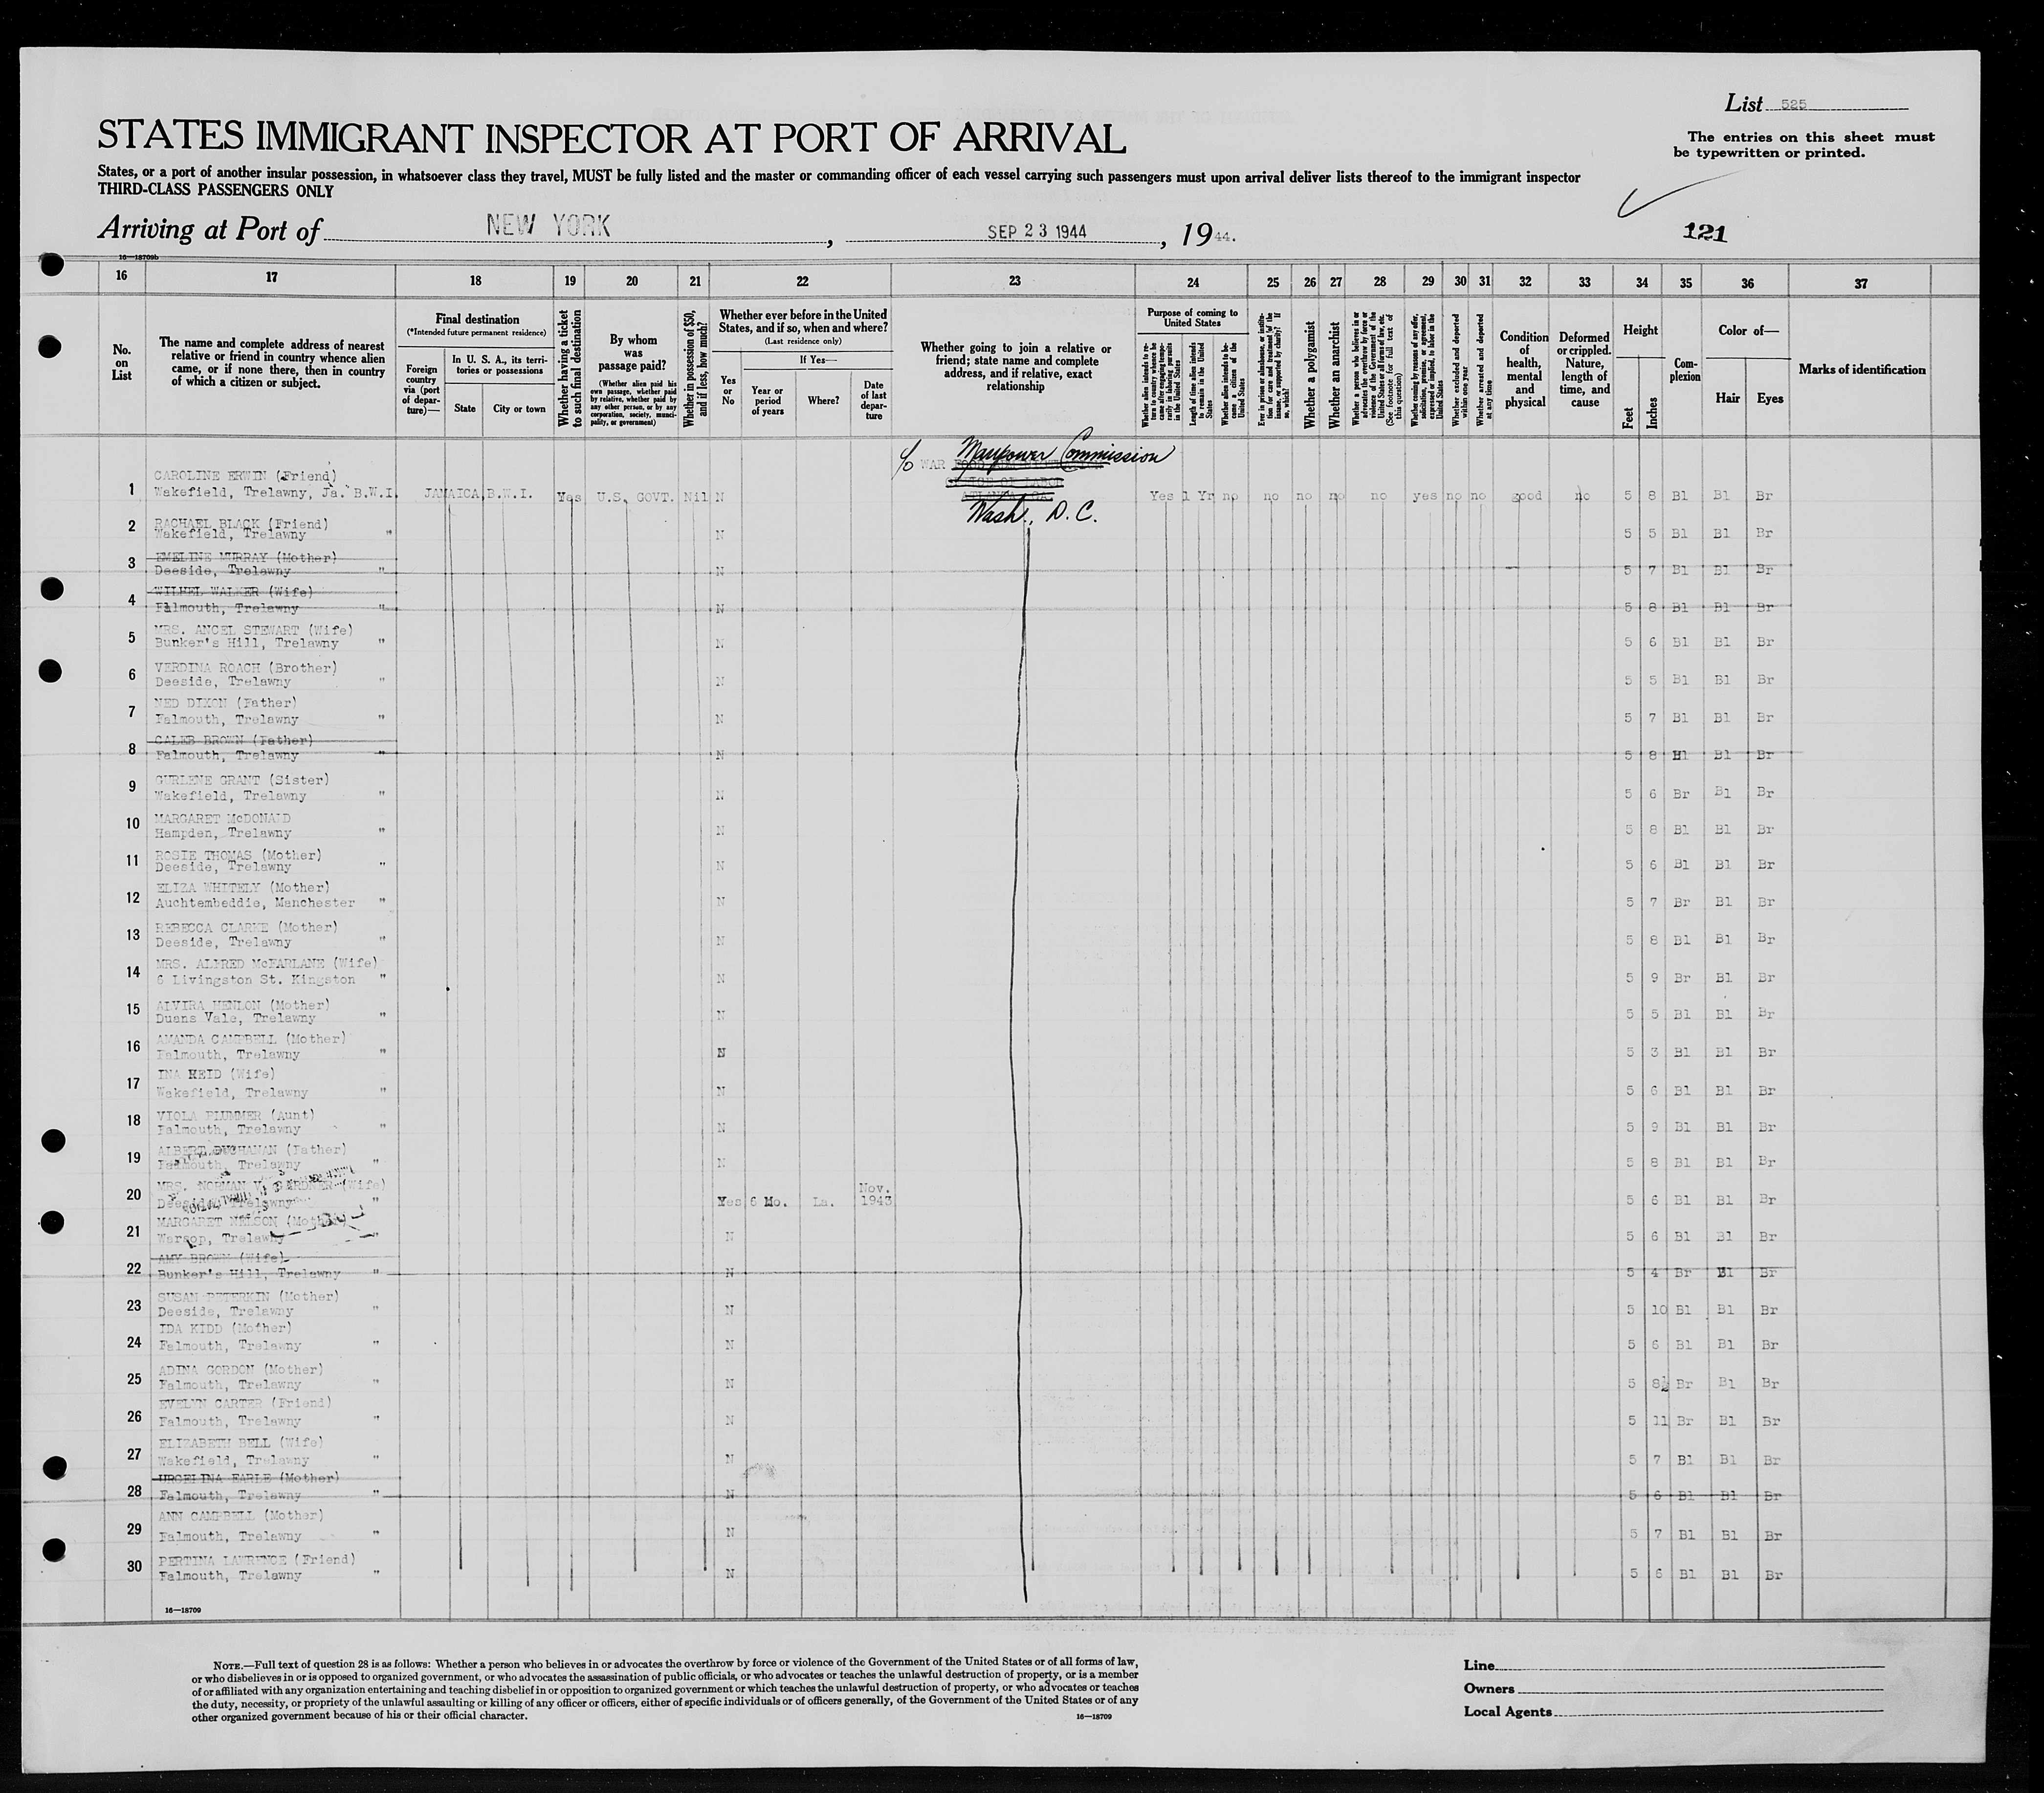 List 525
The entries on this sheet must
be typewritten or printed.
STATES IMMIGRANT INSPECTOR AT PORT OF ARRIVAL
States, or a port of another insular possession, in whatsoever class they travel, MUST be fully listed and the master or commanding officer of each vessel carrying such passengers must upon arrival deliver lists thereof to the immigrant inspector
THIRD-CLASS PASSENGERS ONLY
Arriving at Port of NEW YORK, SEP 23 1944, 1944.
121
16—18709b
16 17 18 19 20 21 22 23 24 25 26 27 28 29 30 31 32 33 34 35 36 37
No. on List
The name and complete address of nearest relative or friend in country whence alien came, or if none there, then in country of which a citizen or subject.
Final destination
(*Intended future permanent residence)
Foreign country via (port of departure)—
In U. S. A., its territories or possessions
State
City or town
Whether having a ticket to such final destination
By whom was passage paid?
(Whether alien paid his own passage, whether paid by relative, whether paid by any other person, or by any corporation, society, municipality, or government)
Whether in possession of $50, and if less, how much?
Whether ever before in the United States, and if so, when and where?
(Last residence only)
Yes or No
If Yes—
Year or period of years
Where?
Date of last departure
Whether going to join a relative or friend; state name and complete address, and if relative, exact relationship
Purpose of coming to United States
Whether alien intends to return to country whence he came after engaging temporarily in laboring pursuits in the United States
Length of time alien intends to remain in the United States
Whether alien intends to become a citizen of the United States
Ever in prison or almshouse, or institution for care and treatment of the insane, or supported by charity? If so, which?
Whether a polygamist
Whether an anarchist
Whether a person who believes in or advocates the overthrow by force or violence of the Government of the United States or all forms of law, etc. (See footnote for full text of this question)
Whether coming by reasons of any offer, solicitation, promise, or agreement, expressed or implied, to labor in the United States
Whether excluded and deported within one year
Whether arrested and deported at any time
Condition of health, mental and physical
Deformed or crippled. Nature, length of time, and cause
Height
Feet
Inches
Complexion
Color of—
Hair
Eyes
Marks of identification
c/o WAR Manpower Commission
OFFICE OF LABOR
ATLANTA, GA.
Wash., D.C.
CAROLINE ERWIN (Friend)
1 Wakefield, Trelawny, Ja. B.W.I. JAMAICA, B.W.I. Yes U.S. GOVT. Nil N Yes 1 Yr no no no no no yes no no good no 5 8 Bl Bl Br
RACHAEL BLACK (Friend)
2 Wakefield, Trelawny " N 5 5 Bl Bl Br
EMELINE MURRAY (Mother)
3 Deeside, Trelawny " N 5 7 Bl Bl Br
WILHEL WALKER (Wife)
4 Falmouth, Trelawny " N 5 8 Bl Bl Br
MRS. ANCEL STEWART (Wife)
5 Bunker's Hill, Trelawny " N 5 6 Bl Bl Br
VERDINA ROACH (Brother)
6 Deeside, Trelawny " N 5 5 Bl Bl Br
NED DIXON (Father)
7 Falmouth, Trelawny " N 5 7 Bl Bl Br
CALEB BROWN (Father)
8 Falmouth, Trelawny " N 5 8 Bl Bl Br
GURLENE GRANT (Sister)
9 Wakefield, Trelawny " N 5 6 Br Bl Br
MARGARET McDONALD
10 Hampden, Trelawny " N 5 8 Bl Bl Br
ROSIE THOMAS (Mother)
11 Deeside, Trelawny " N 5 6 Bl Bl Br
ELIZA WHITELY (Mother)
12 Auchtembeddie, Manchester " N 5 7 Br Bl Br
REBECCA CLARKE (Mother)
13 Deeside, Trelawny " N 5 8 Bl Bl Br
MRS. ALFRED McFARLANE (Wife)
14 6 Livingston St. Kingston " N 5 9 Br Bl Br
ALVIRA HENLON (Mother)
15 Duans Vale, Trelawny " N 5 5 Bl Bl Br
AMANDA CAMPBELL (Mother)
16 Falmouth, Trelawny " N 5 3 Bl Bl Br
INA REID (Wife)
17 Wakefield, Trelawny " N 5 6 Bl Bl Br
VIOLA PLUMMER (Aunt)
18 Falmouth, Trelawny " N 5 9 Bl Bl Br
ALBERT BUCHANAN (Father)
19 Falmouth, Trelawny " N 5 8 Bl Bl Br
MRS. NORMAN V. GARDNER (Wife)
20 Deeside, Trelawny " Yes 6 Mo. La. Nov. 1943 5 6 Bl Bl Br
MARGARET NELSON (Mother)
21 Warsop, Trelawny " N 5 6 Bl Bl Br
AMY BROWN (Wife)
22 Bunker's Hill, Trelawny " N 5 4 Br Bl Br
SUSAN PETERKIN (Mother)
23 Deeside, Trelawny " N 5 10 Bl Bl Br
IDA KIDD (Mother)
24 Falmouth, Trelawny " N 5 6 Bl Bl Br
ADINA GORDON (Mother)
25 Falmouth, Trelawny " N 5 8½ Br Bl Br
EVELYN CARTER (Friend)
26 Falmouth, Trelawny " N 5 11 Br Bl Br
ELIZABETH BELL (Wife)
27 Wakefield, Trelawny " N 5 7 Bl Bl Br
URCELINA EARLE (Mother)
28 Falmouth, Trelawny " N 5 6 Bl Bl Br
ANN CAMPBELL (Mother)
29 Falmouth, Trelawny " N 5 7 Bl Bl Br
PERTINA LAWRENCE (Friend)
30 Falmouth, Trelawny " N 5 6 Bl Bl Br
16—18709
NOTE.—Full text of question 28 is as follows: Whether a person who believes in or advocates the overthrow by force or violence of the Government of the United States or of all forms of law,
or who disbelieves in or is opposed to organized government, or who advocates the assassination of public officials, or who advocates or teaches the unlawful destruction of property, or is a member
of or affiliated with any organization entertaining and teaching disbelief in or opposition to organized government or which teaches the unlawful destruction of property, or who advocates or teaches
the duty, necessity, or propriety of the unlawful assaulting or killing of any officer or officers, either of specific individuals or of officers generally, of the Government of the United States or of any
other organized government because of his or their official character.
16—18709
Line
Owners
Local Agents